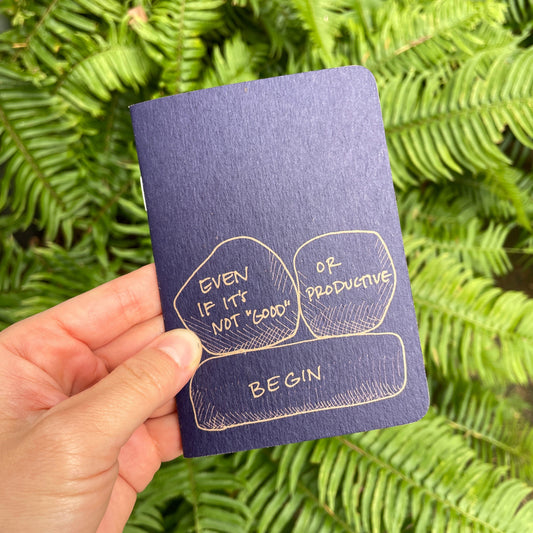 EVEN
IF IT'S
NOT "GOOD"
OR
PRODUCTIVE
BEGIN.